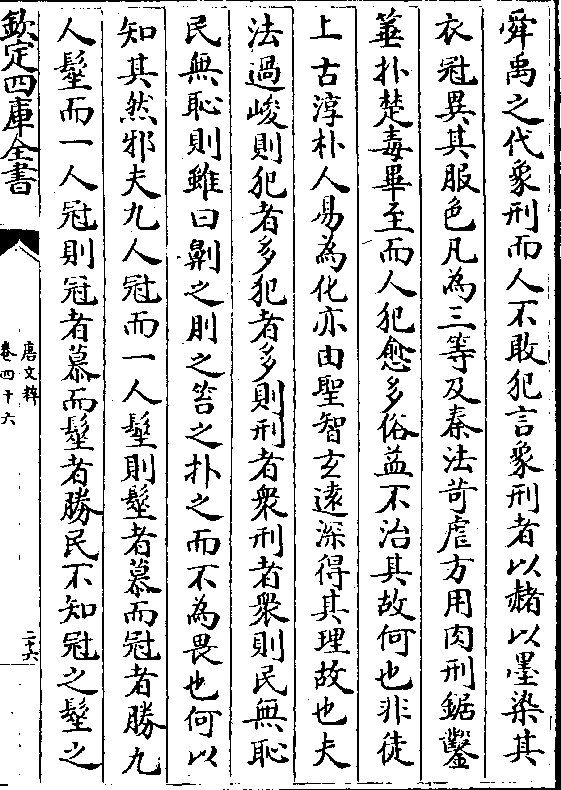 舜禹之代象刑而人不敢犯言象刑者以赭以墨染其
衣冠異其服色凡為三等及秦法苛虐方用肉刑鋸鑿
箠扑楚毒畢至而人犯愈多俗益不治其故何也非徒
上古淳朴人易為化亦由聖智玄遠深得其理故也夫
法過峻則犯者多犯者多則刑者衆刑者衆則民無恥
民無恥則雖曰劓之刖之笞之扑之而不為畏也何以
知其然邪夫九人冠而一人髽則髽者慕而冠者勝九
人髽而一人冠則冠者慕而髽者勝民不知冠之髽之
欽定四庫全書
唐文粹
卷四十六
二十六